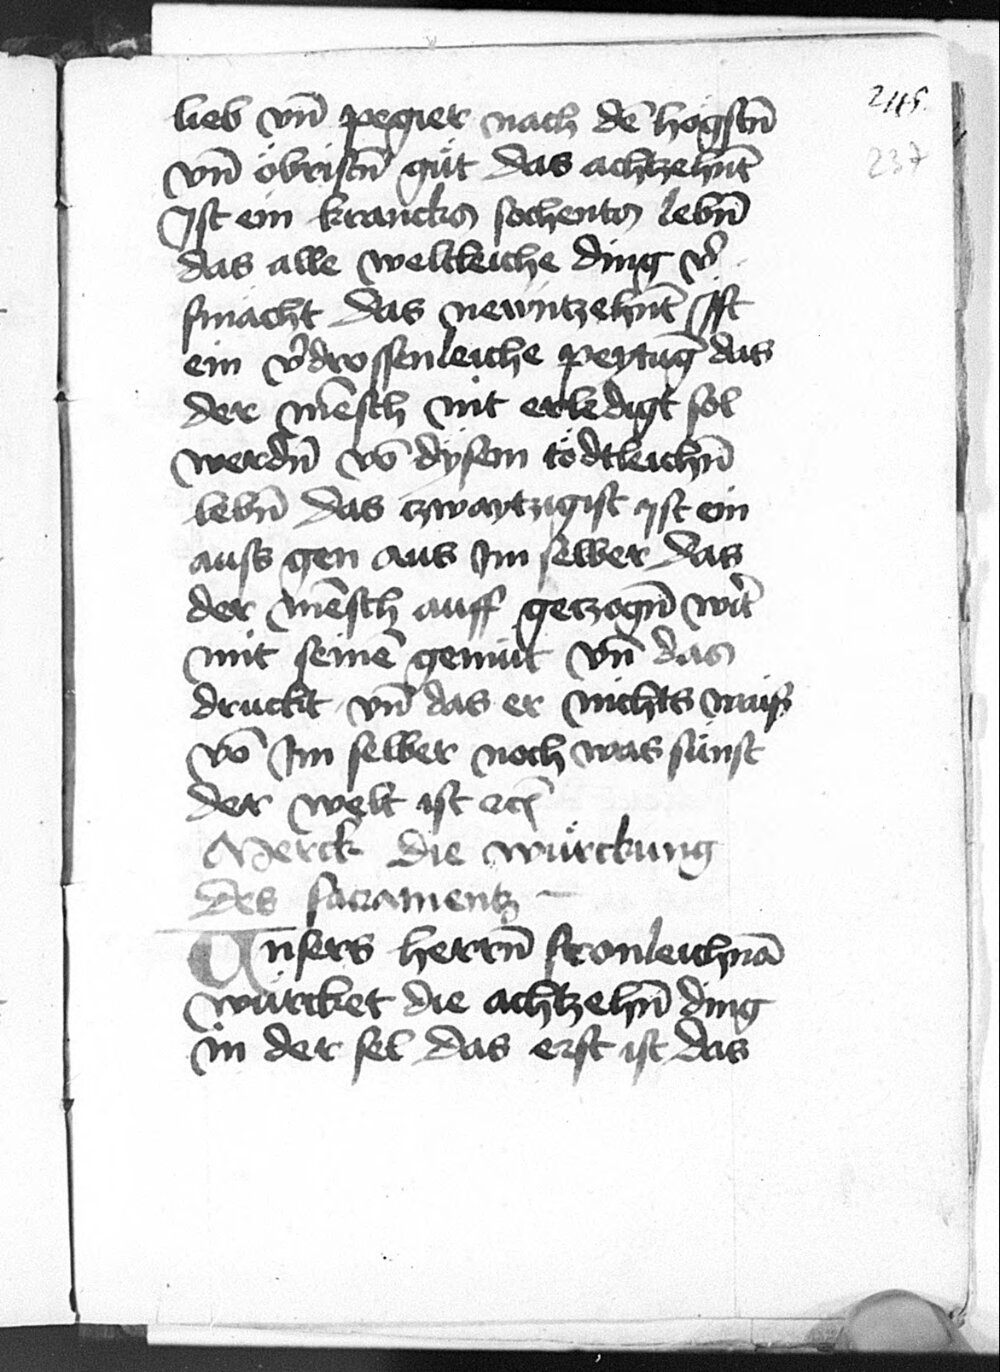 245
237
lieb vn̄ pegier nach dē högstn̄
vn̄ öbristn̄ güt das achtzehn̄t
yst ein kranckes sochentes lebn̄
das alle weltleiche ding v̄
smächt das newntzehn̄t yst
ein v̄drossenleiche peytūg das
der mēsch mit erledigt sol
werdn̄ vō dysem tödtleichn̄
lebn̄ das zwaytzigist yst ein
auss gen aus Im selber das
der mēsch auff getzogn̄ wirt
mit seinē gemüt vn̄ das
druckt vn̄ das er nichts waiß
vō Im selber noch was sünst
der welt ist etc̄
Merck die würckung
des sacramentz
Unsers herrn̄ fronleichnā
würcket die achtzehn̄ ding
in der sel das erst ist das